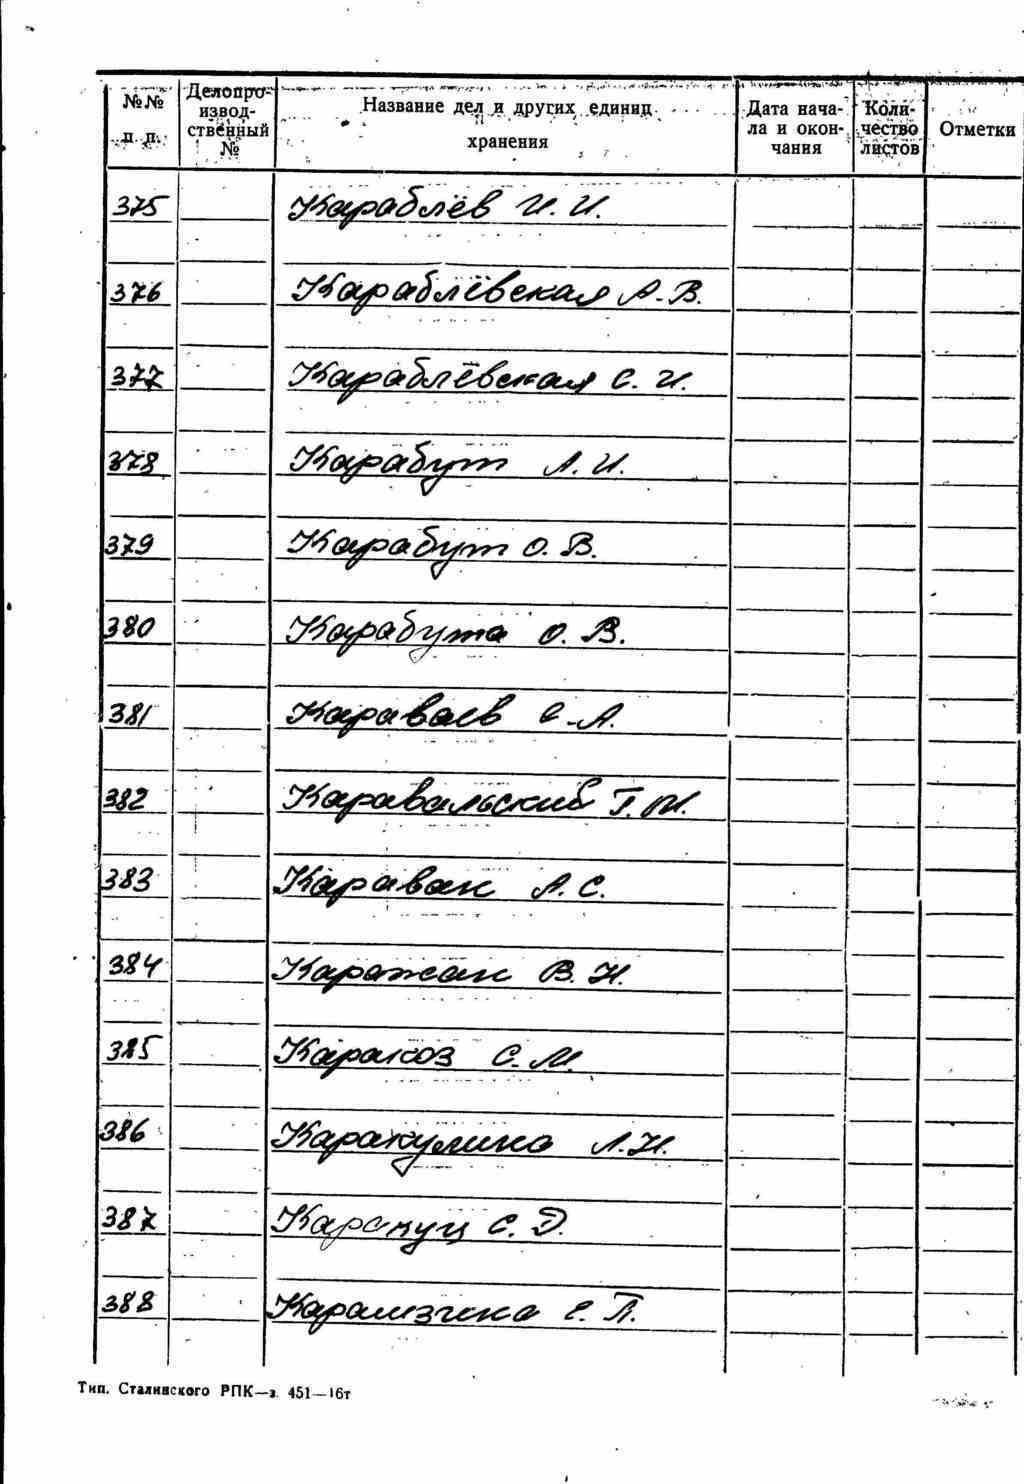 №№ п. п. Делопроизводственный № Название дел и других единиц хранения Дата начала и окончания Количество листов Отметки
375 Караблёв И. И.
376 Караблёвская А. В.
377 Караблёвская С. И.
378 Карабут А. И.
379 Карабут О. В.
380 Карабута О. В.
381 Караваев С. А.
382 Каравальский Г. М.
383 Караван А. С.
384 Каражан В. Н.
385 Каракоз С. М.
386 Каракулина Л. Н.
387 Карапуц С. Д.
388 Карамзина Е. П.
Тип. Сталинского РПК—з. 451—16т